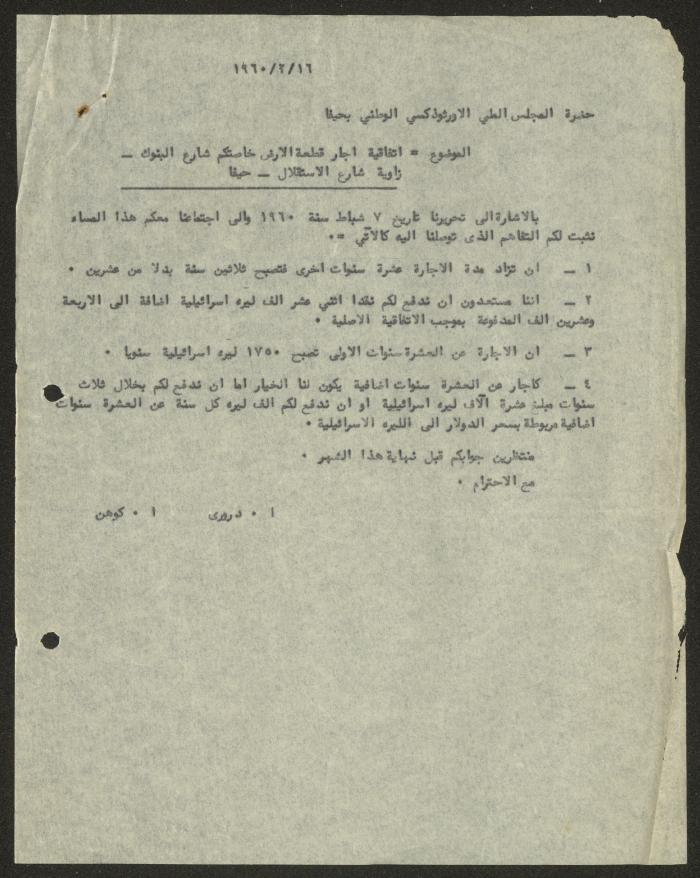 ١٩٦٠/٢/١٦
حضرة المجلس الملي الاورثوذكسي الوطني بحيفا
الموضوع = اتفاقية اجار قطعة الارض خاصتكم شارع البنوك ــ
زاوية شارع الاستقلال ــ حيفا
بالاشارة الى تحريرنا تاريخ ٧ شباط سنة ١٩٦٠ والى اجتماعنا معكم هذا المساء
نثبت لكم التفاهم الذى توصلنا اليه كالآتي =٠
١ ــ ان تزاد مدة الاجارة عشرة سنوات اخرى فتصبح ثلاثين سنة بدلا من عشرين ٠
٢ ــ اننا مستعدون ان ندفع لكم نقدا اثني عشر الف ليره اسرائيلية اضافة الى الاربعة
وعشرين الف المدفوعة بموجب الاتفاقية الاصلية ٠
٣ ــ ان الاجارة عن العشرة سنوات الاولى تصبح ١٧٥٠ ليره اسرائيلية سنويا ٠
٤ ــ كاجار عن العشرة سنوات اضافية يكون لنا الخيار اما ان ندفع لكم بخلال ثلاث
سنوات مبلغ عشرة آلاف ليره اسرائيلية او ان ندفع لكم الف ليره كل سنة عن العشرة سنوات
اضافية مربوطة بسعر الدولار الى الليره الاسرائيلية ٠
منتظرين جوابكم قبل نهاية هذا الشهر ٠
مع الاحترام ٠
ا ٠ درورى ا ٠ كوهن